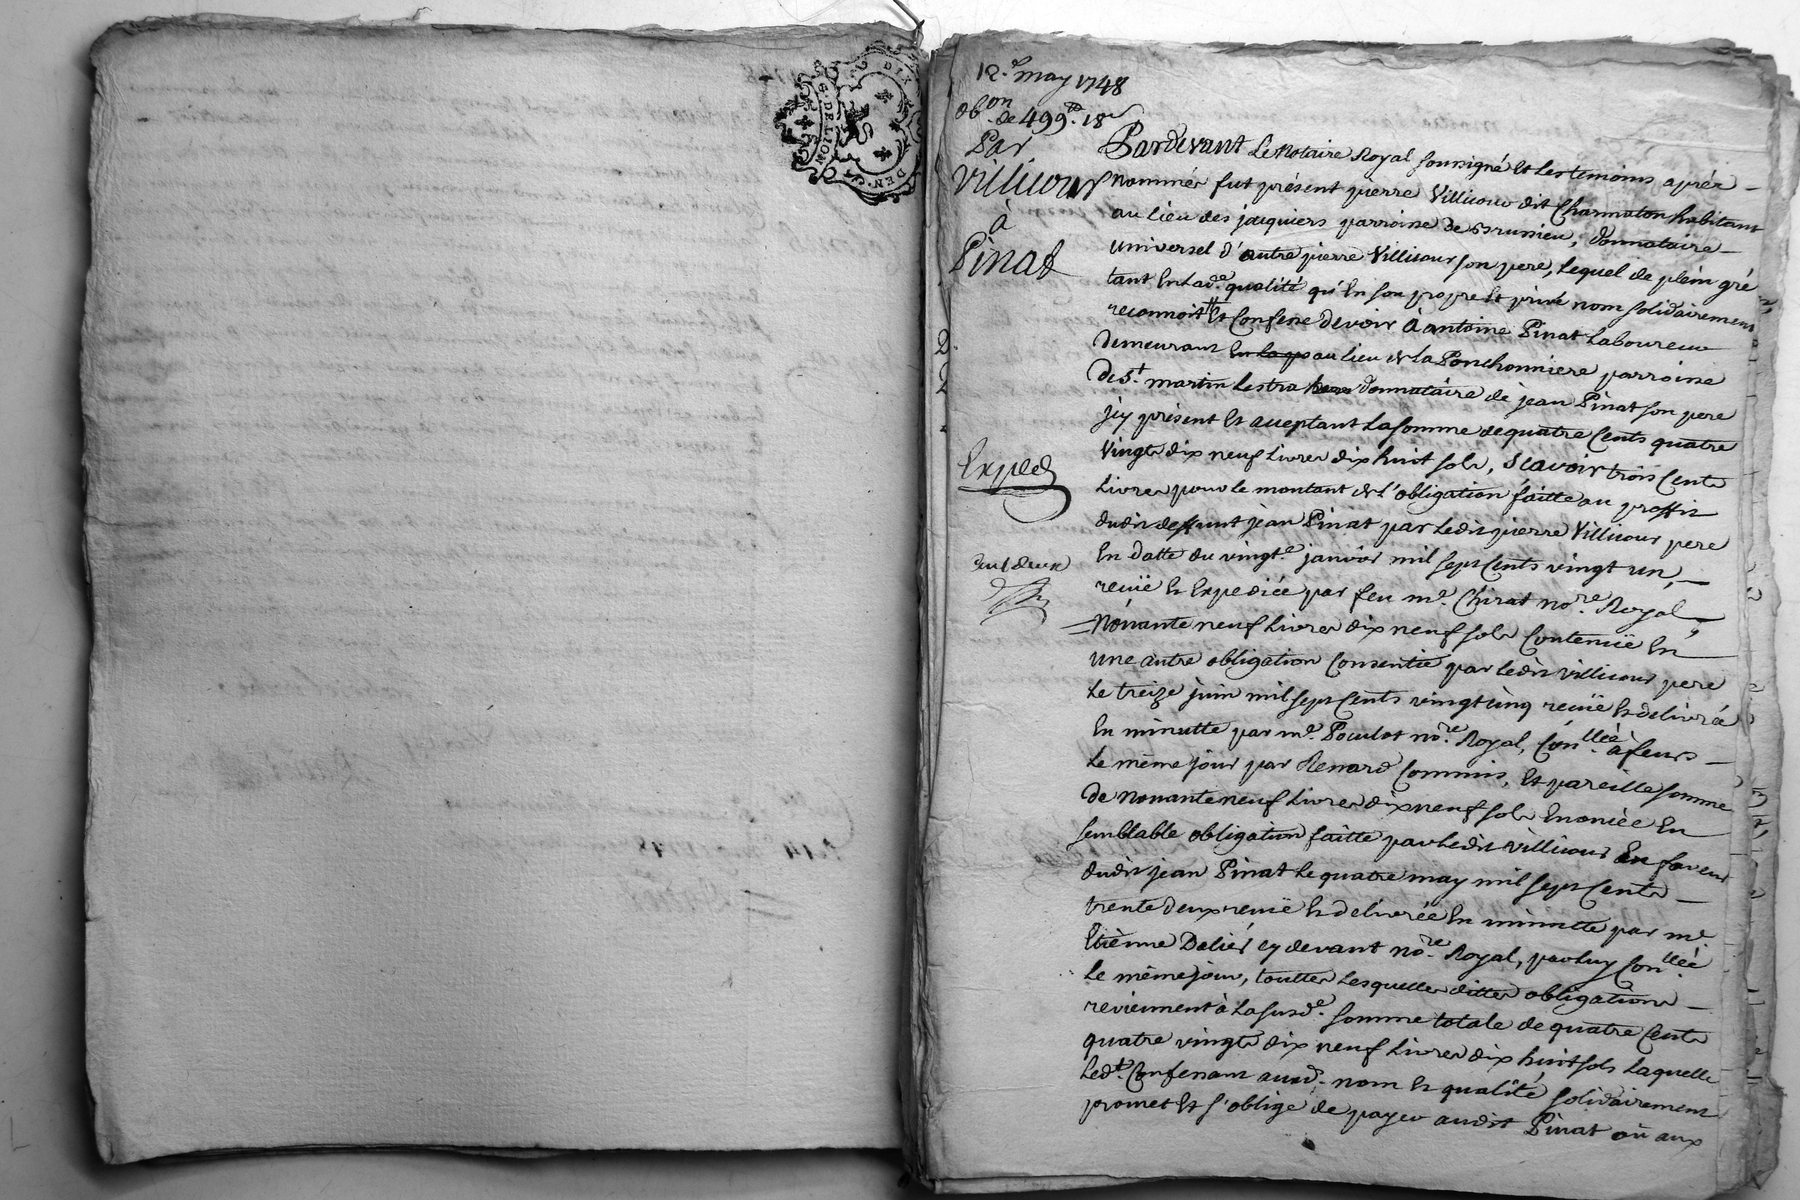 G. DE LION
DIX
DEN.
12.e may 1748
ob.on de 499.# 18 s
Par
Villicour
à
Pinat
Exped
Pardevant Le Notaire Royal soussigné Et Les temoins aprés
nommés fut présent pierre Villicour dit Charmaton habitant
au lieu des jacquiers parroisse de Brussieu, donnataire
universel d'autre pierre Villicour son pere, Lequel de plein gré
tant En lad.e qualité qu'En son propre Et privé nom solidairement
reconnoit Et Confesse devoir à antoine Pinat Laboureur
demeurant au lieu de La Ponchonniere parroisse
de S.t martin Lestra donnataire de jean Pinat son pere
jcy présent Et acceptant La somme de quatre Cents quatre
Vingts dix neuf Livres dix huit sols, scavoir trois Cents
Livres pour le montant de L'obligation faitte au proffit
dudit deffunt jean Pinat par Ledit pierre Villicour pere
En datte du vingt.e janvier mil sept Cents vingt un,
reçüe Et Expediée par feu m.e Chirat no.re Royal
Nonante neuf Livres dix neuf sols Contenüe En
une autre obligation Consentie par Ledit Villicour pere
Le treize juin mil sept Cents vingt cinq reçüe Et delivrée
En minutte par m.e Poculot no.re Royal, Con.llée à feurs
Le même jour par Renard Commis, Et pareille somme
de Nonante neuf Livres dix neuf sols Enoncée En
semblable obligation faitte par Ledit Villicour En faveur
dudit jean Pinat Le quatre may mil sept Cents
trente deux reçüe Et delivrée En minutte par m.e
Etiénne Daliés cy devant no.re Royal, par Luy Con.llée
Le même jour, touttes Lesquelles dittes obligations
reviennent à La susd.e somme totale de quatre Cents
quatre vingts dix neuf Livres dix huit sols Laquelle
Led.t Confessant auxd. nom Et qualité solidairement
promet Et s'oblige de payer audit Pinat où aux